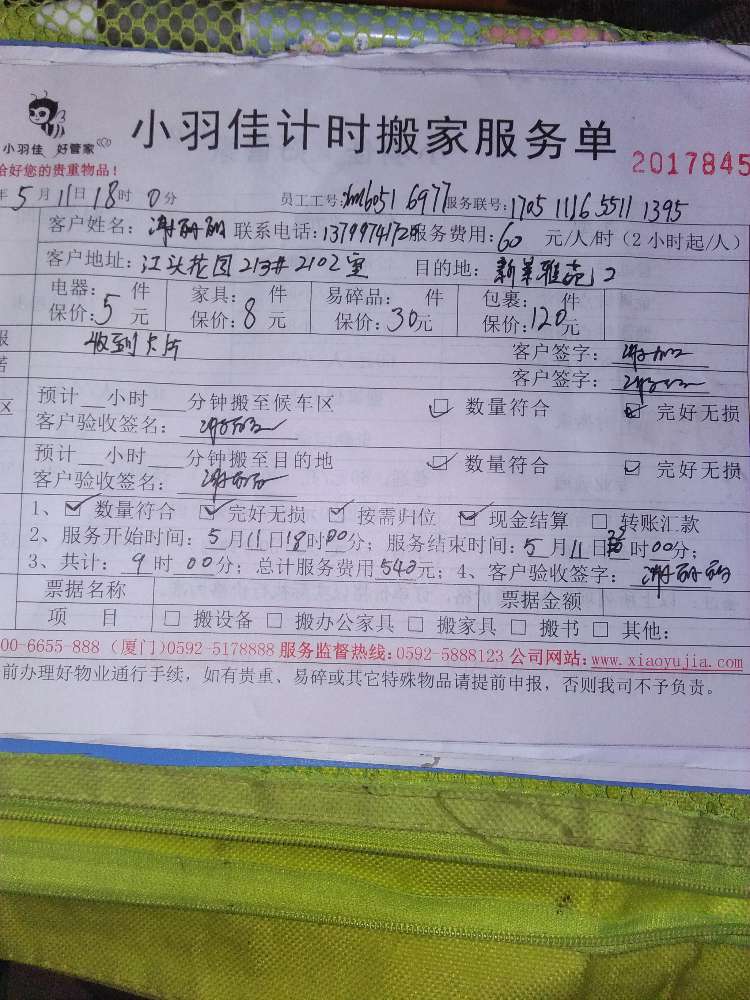 小羽佳 好管家
小羽佳计时搬家服务单
2017845
合好您的贵重物品!
年5月11日18时0分 员工工号: 6051 6977 服务联号:1705 1116 5511 1395
客户姓名: 联系电话: 服务费用:60 元/人/时(2小时起/人)
客户地址:江头花园213#2102室 目的地:
电器: 件 家具: 件 易碎品: 件 包裹: 件
保价:5元 保价:8元 保价:30元 保价:120元
收到卡片 客户签字:
客户签字:
预计 小时 分钟搬至候车区 数量符合 完好无损
客户验收签名:
预计 小时 分钟搬至目的地 数量符合 完好无损
客户验收签名:
1、数量符合 完好无损 按需归位 现金结算 转账汇款
2、服务开始时间:5月11日18时00分;服务结束时间:5月11日 时00分;
3、共计:9时00分;总计服务费用540元;4、客户验收签字:
票据名称 票据金额
项 目 搬设备 搬办公家具 搬家具 搬书 其他:
00-6655-888 (厦门)0592-5178888 服务监督热线:0592-5888123 公司网站:www.xiaoyujia.com
前办理好物业通行手续,如有贵重、易碎或其它特殊物品请提前申报,否则我司不予负责。